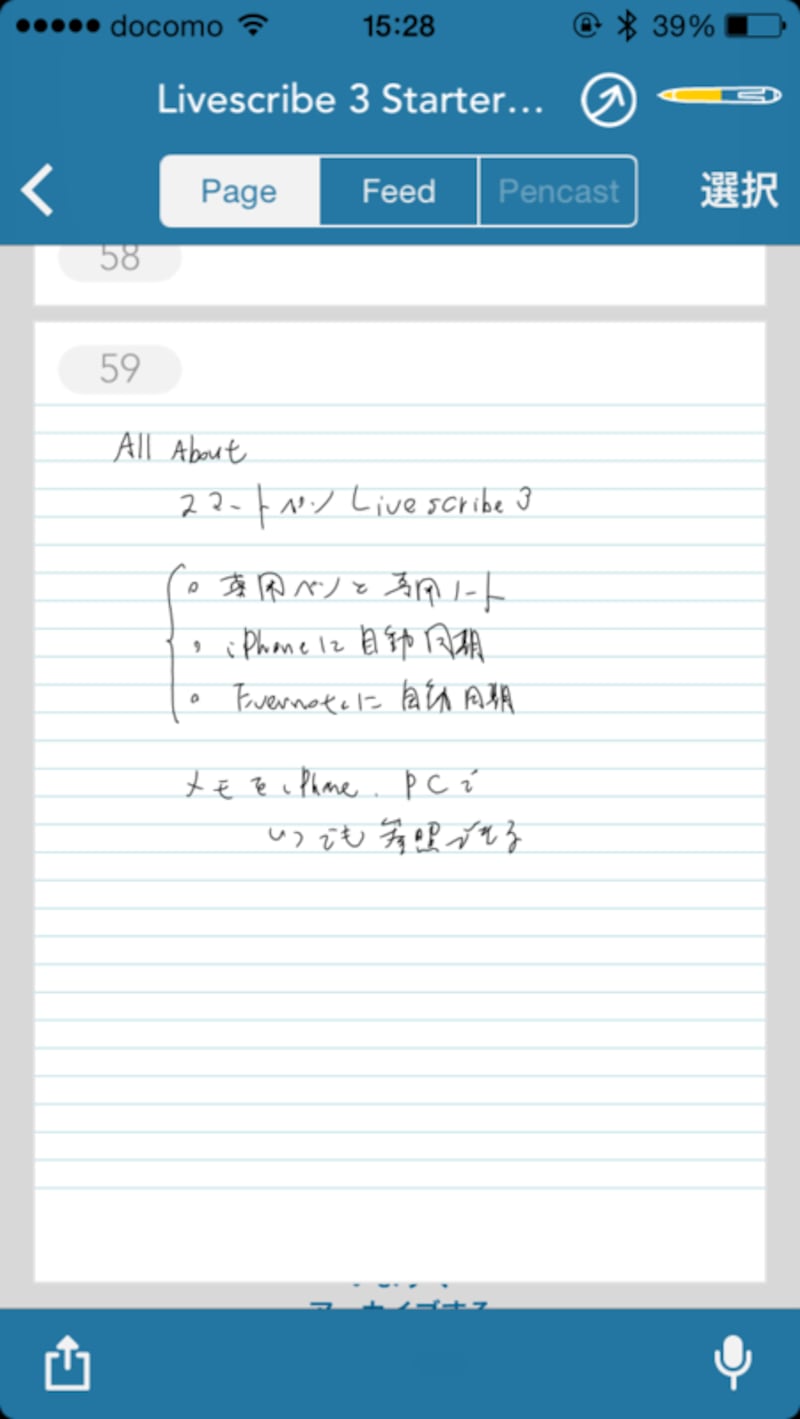 docomo 15:28 39%
Livescribe 3 Starter...
Page Feed Pencast 選択
58
59
All About
スマートペン Livescribe 3
。専用ペンと専用ノート
。iPhoneに自動同期
。Evernoteに自動同期
メモをiPhone. PCで
いつでも参照できる
アーカイブする